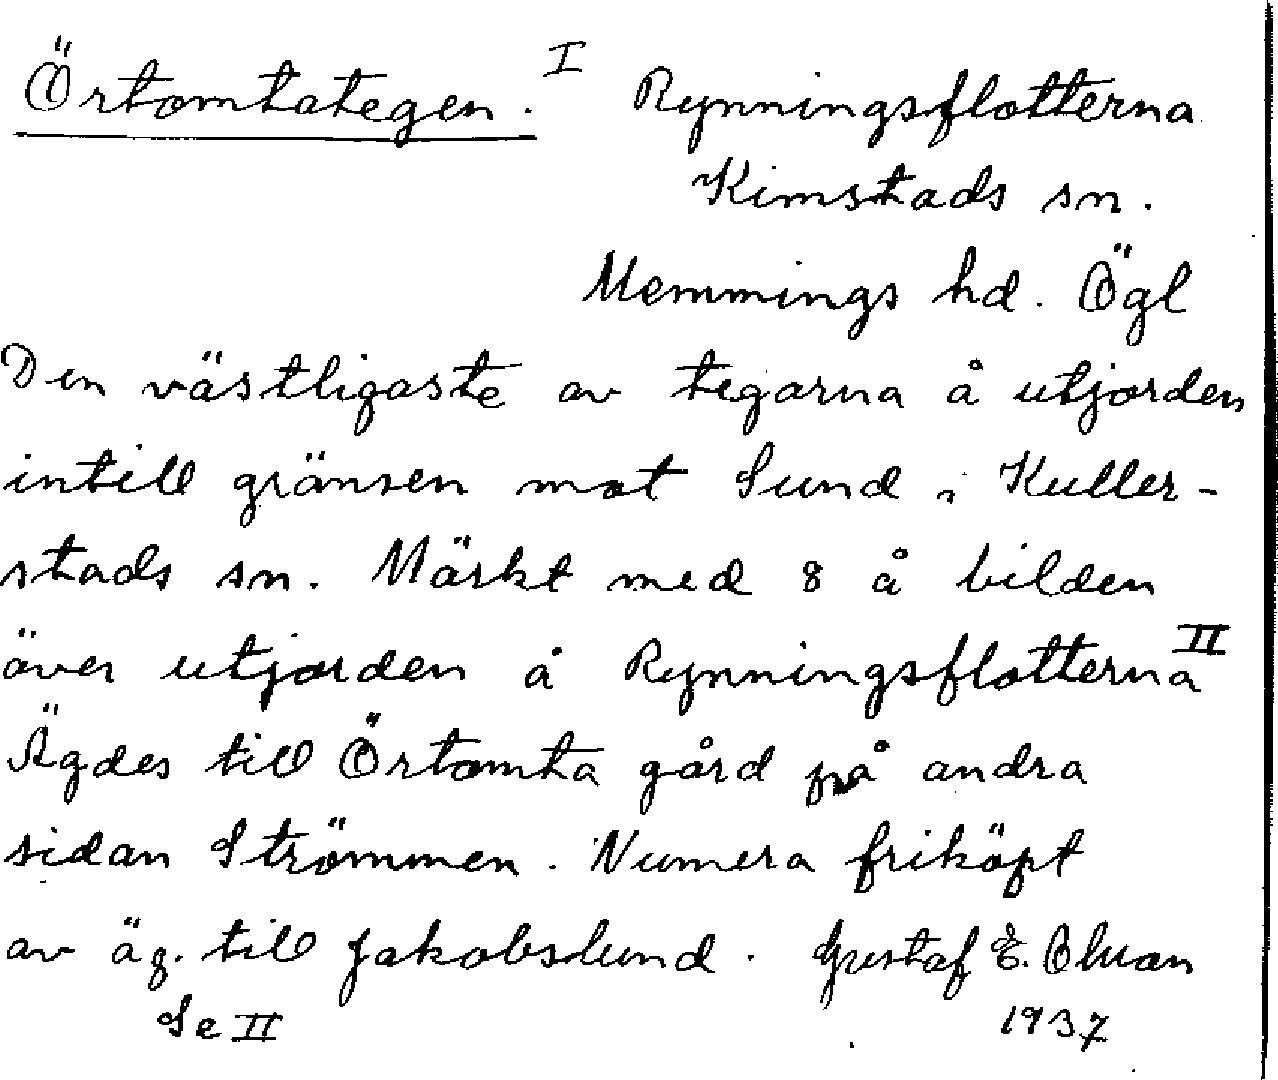 Örtomtategen. I Rynningsflotterna
Kimstads sn.
Memmings hd. Ögl
Den västligaste av tegarna å utjorden
intill gränsen mot Sund i Kuller-
stads sn. Märkt med 8 å bilden
över utjorden å Rynningsflotterna II
Ägdes till Örtomta gård på andra
sidan Strömmen. Numera friköpt
av äg. till Jakobslund. Gustaf E.
Se II 1937